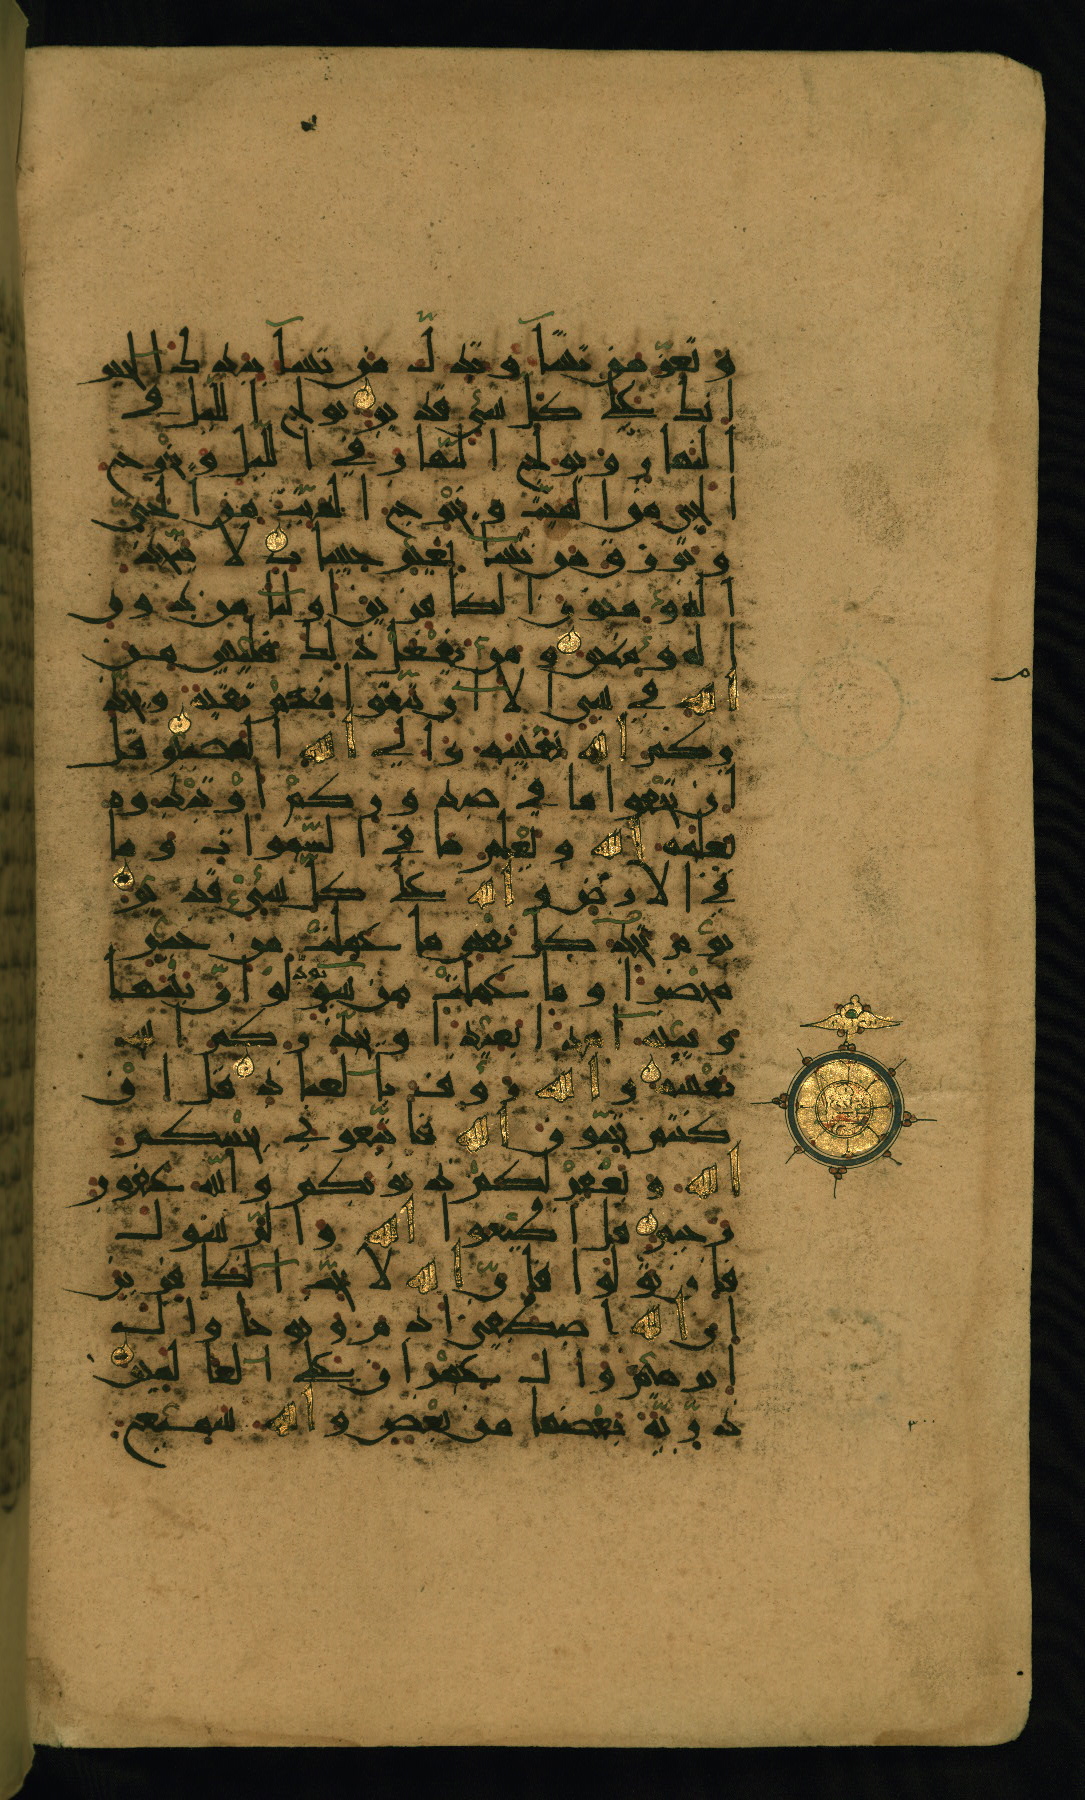 و تعز من تشآ و تذ ل من تشآ بيد ك الخير
ا نك على كل شي قد ير تولج ا لليل في
ا لنها ر و تولج ا لنها ر في ا لليل و تخرج
ا لحي من ا لميت و تخرج ا لميت من ا لحي
و تر ز ق من تشآ بغير حسا ب لا يتخذ
ا لمو منو ن ا لكا فر ين ا و ليآ من د و ن
ا لمو منين و من يفعل ذ لك فليس من
ا لله في شي ا لا ا ن تتقو ا منهم تقية و يحذ
ر كم ا لله نفسه و ا لي ا لله ا لمصير قل
ا ن تخفو ا ما في صد و ر كم ا و تبد و ه
يعلمه ا لله و يعلم ما في ا لسموا ت و ما
في ا لا ر ض و ا لله على كل شي قد ير
يو م تجد كل نفس ما عملت من خير
محضر ا و ما عملت من سو تود لو ا ن بينها
و بينه ا مد ا بعيد ا و يحذ ر كم ا لله
نفسه و ا لله ر و ف با لعبا د قل ا ن
كنتم تحبو ن ا لله فا تبعو ني يحببكم
ا لله و يغفر لكم ذ نو بكم و ا لله غفور
ر حيم قل ا طيعو ا ا لله و ا لر سو ل
فا ن تو لو ا فا ن ا لله لا يحب ا لكا فر ين
ا ن ا لله ا صطفى ا د م و نو حا و ا ل
ا بر هيم و ا ل عمر ا ن على ا لعا لمين
ذ ر ية بعضها من بعض و ا لله سميع